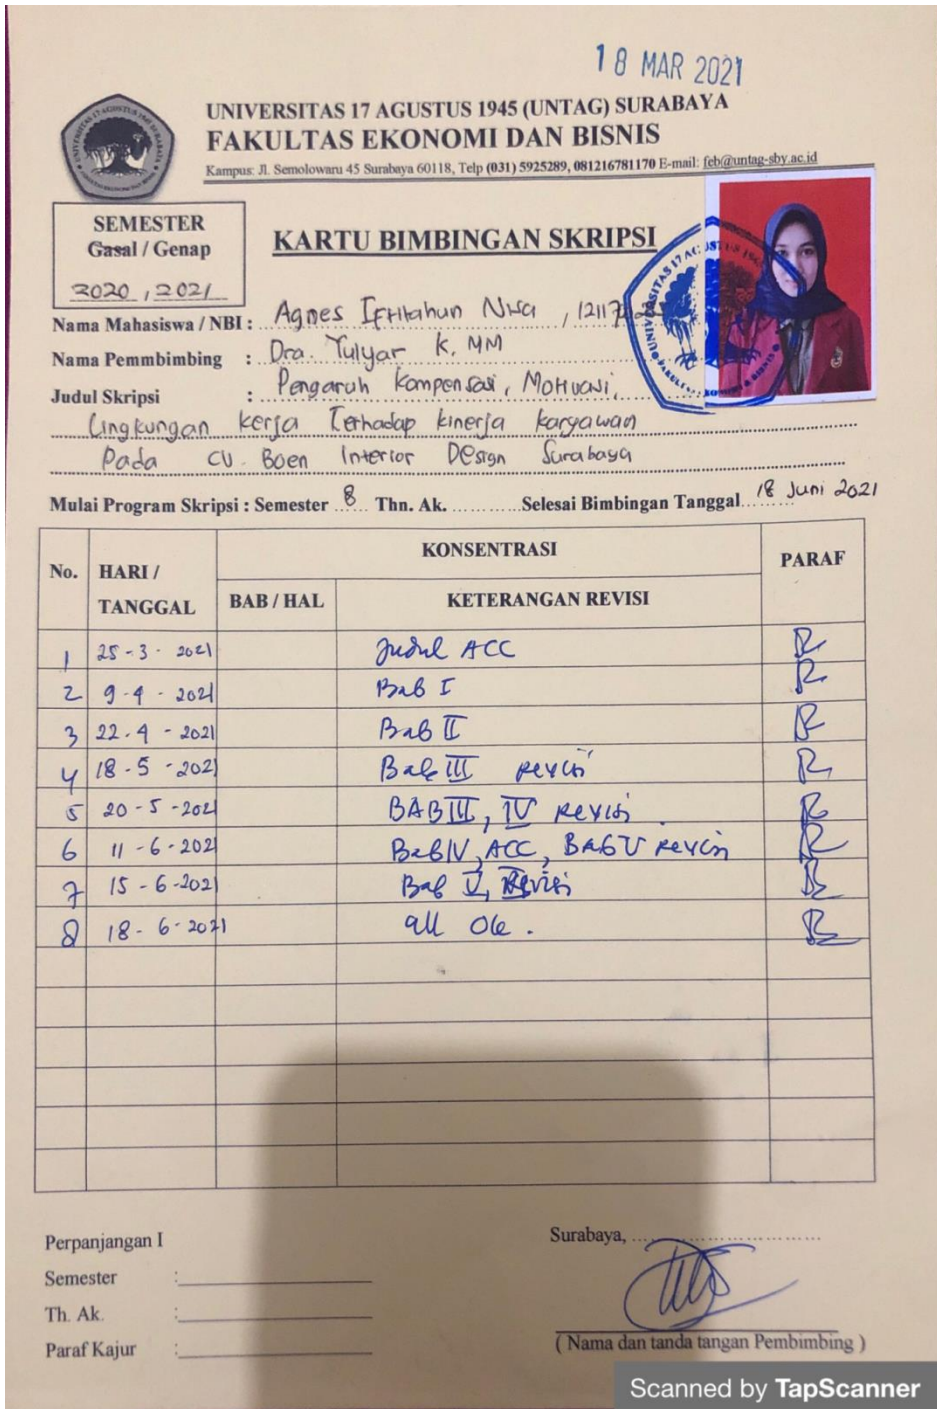 18 MAR 2021
UNIVERSITAS 17 AGUSTUS 1945 (UNTAG) SURABAYA
FAKULTAS EKONOMI DAN BISNIS
Kampus: Jl. Semolowaru 45 Surabaya 60118, Telp (031) 5925289, 081216781170 E-mail: feb@untag-sby.ac.id
SEMESTER
Gasal / Genap
2020 , 2021
KARTU BIMBINGAN SKRIPSI
Nama Mahasiswa / NBI : Agnes Iftitahun Nisa ,
Nama Pemmbimbing : Dra. Yulyar K. MM
Judul Skripsi : Pengaruh Kompensasi, Motivasi,
Lingkungan Kerja Terhadap Kinerja Karyawan
Pada CV. Boen Interior Design Surabaya
Mulai Program Skripsi : Semester 8 Thn. Ak. Selesai Bimbingan Tanggal 18 Juni 2021
No. HARI / TANGGAL KONSENTRASI PARAF
BAB / HAL KETERANGAN REVISI
1 25 - 3 - 2021 Judul ACC
2 9 - 4 - 2021 Bab I
3 22 - 4 - 2021 Bab II
4 18 - 5 - 2021 Bab III revisi
5 20 - 5 - 2021 BAB III, IV Revisi
6 11 - 6 - 2021 Bab IV, ACC, BAB V revisi
7 15 - 6 - 2021 Bab V, Revisi
8 18 - 6 - 2021 all Ok.
Perpanjangan I
Semester :
Th. Ak. :
Paraf Kajur :
Surabaya,
( Nama dan tanda tangan Pembimbing )
Scanned by TapScanner